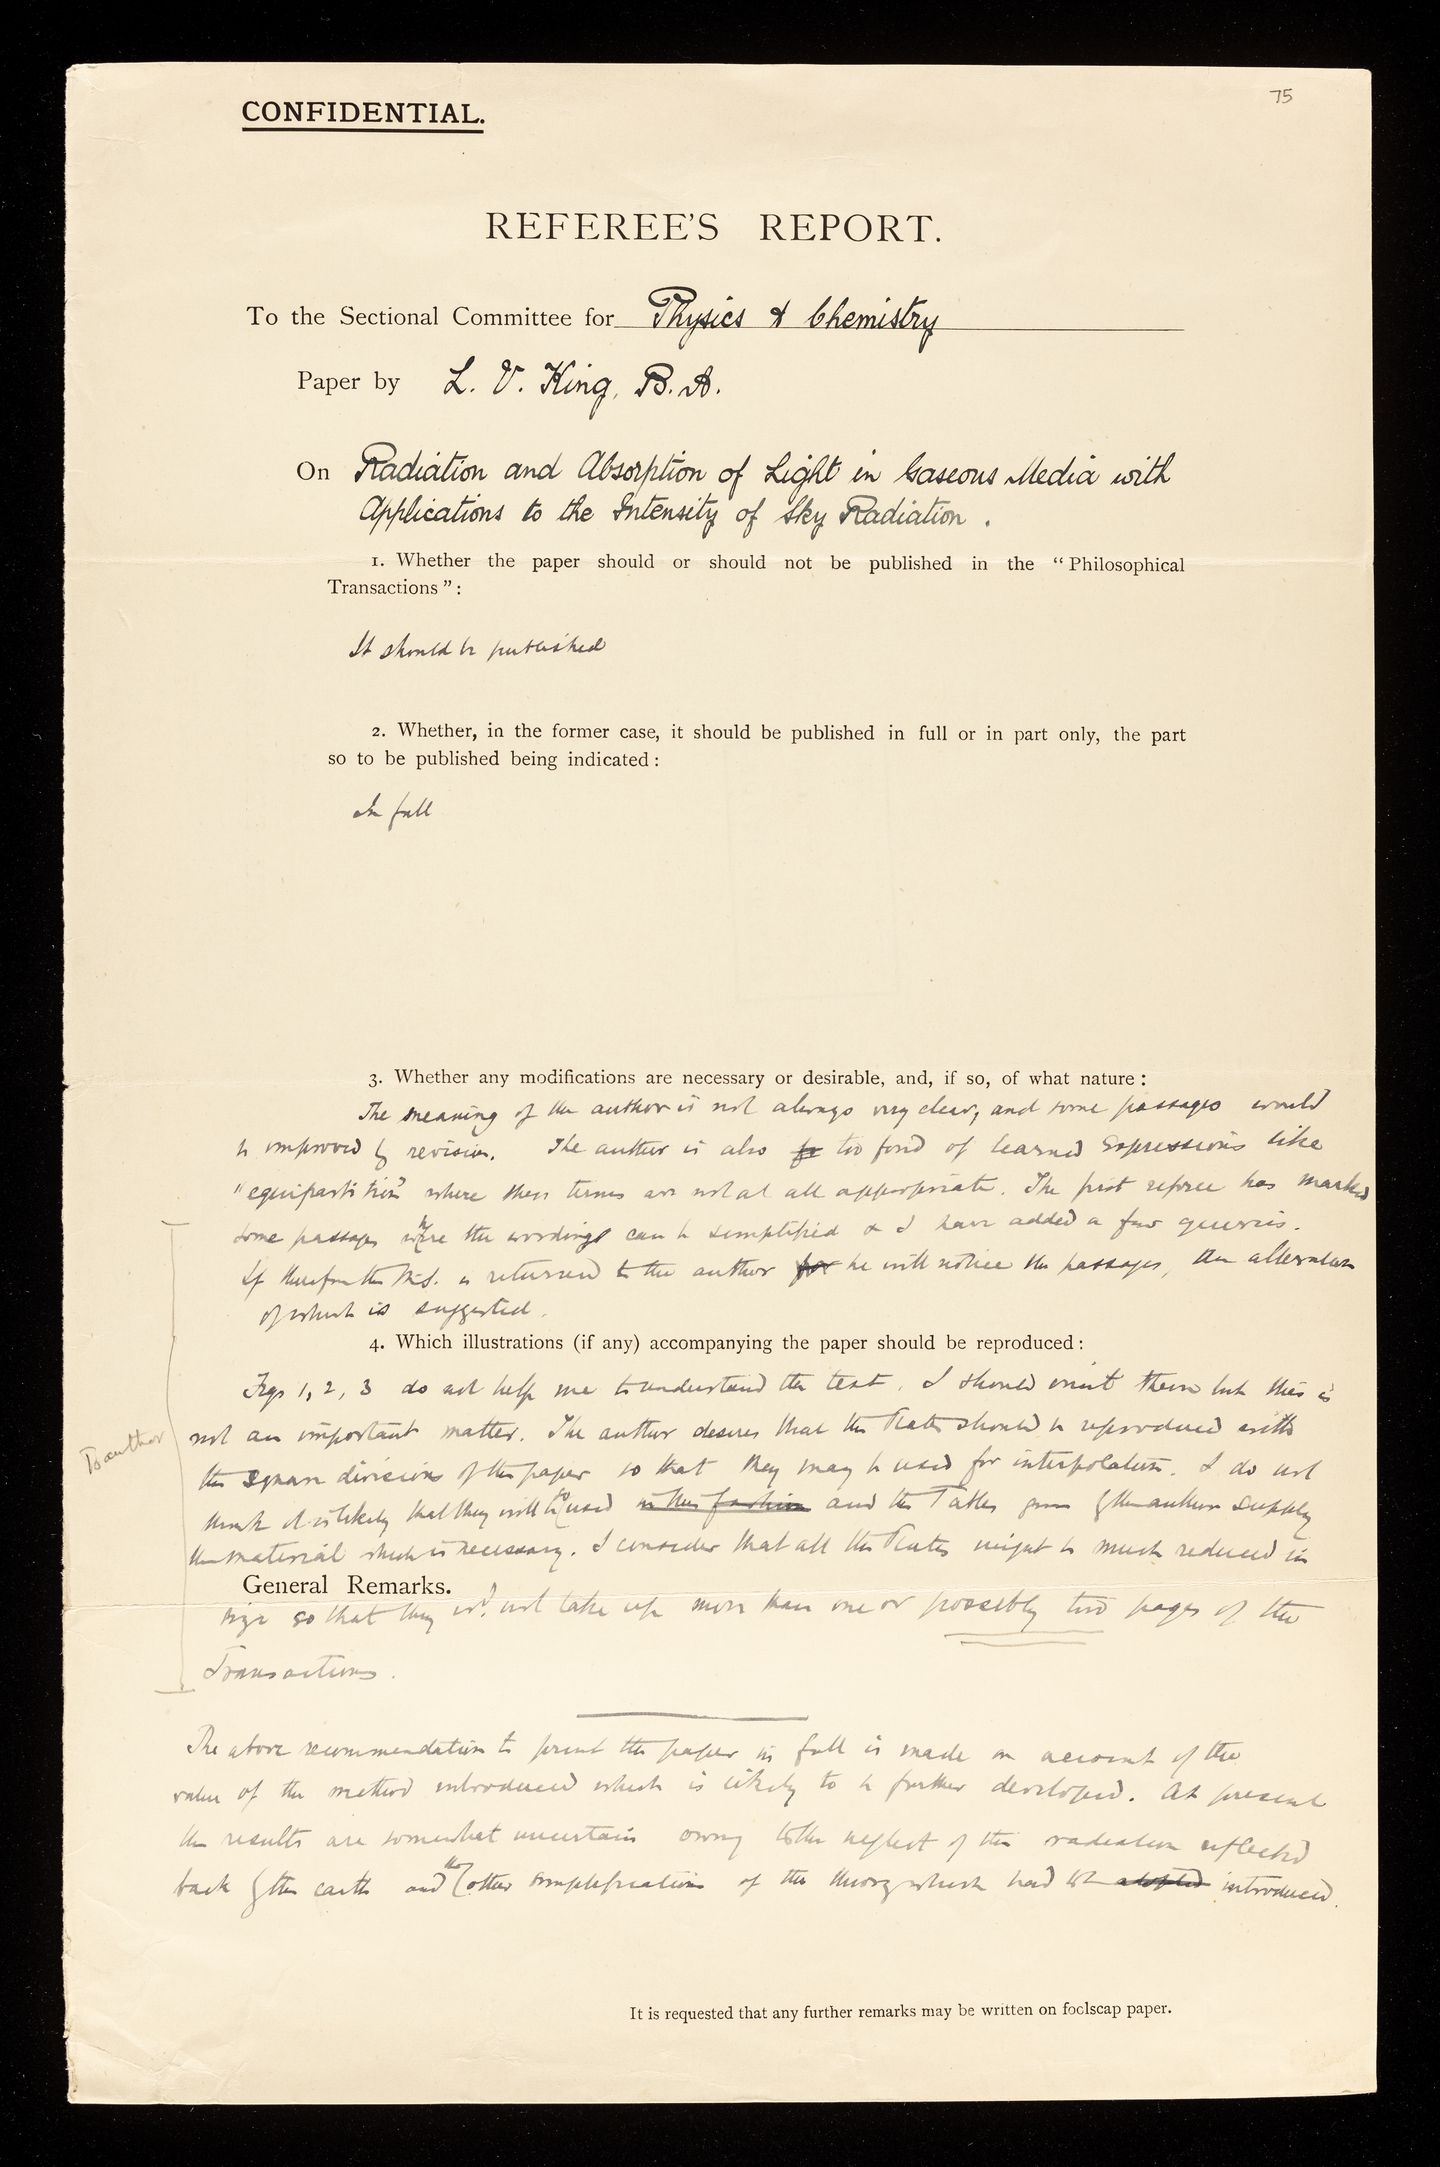 75
CONFIDENTIAL.
REFEREE'S REPORT.
To the Sectional Committee for Physics & Chemistry
Paper by L. V. King, B.A.
On Radiation and Absorption of Light in Gaseous Media with
Applications to the Intensity of Sky Radiation.
1. Whether the paper should or should not be published in the "Philosophical
Transactions":
It should be published
2. Whether, in the former case, it should be published in full or in part only, the part
so to be published being indicated:
In full
3. Whether any modifications are necessary or desirable, and, if so, of what nature:
The meaning of the author is not always very clear, and some passages would
be improved by revision. The author is also too fond of learned expressions like
"equipartition" where these terms are not at all appropriate. The first referee has marked
some passages where the wording can be simplified & I have added a few queries.
If therefore the M.S. is returned to the author for he will notice the passages, the alteration
of which is suggested.
4. Which illustrations (if any) accompanying the paper should be reproduced:
Figs 1, 2, 3 do not help me to understand the text. I should omit them but this is
not an important matter. The author desires that the Plates should be reproduced with
To author
the square divisions of the paper so that they may be used for interpolation. I do not
think it is likely that they will be so used in this fashion and the Tables given by the author supply
the material which is necessary. I consider that all the Plates might be much reduced in
General Remarks.
size so that they wd. not take up more than one or possibly two pages of the
Transactions.
The above recommendation to print the paper in full is made on account of the
value of the method introduced which is likely to be further developed. At present
the results are somewhat uncertain owing to the neglect of the radiation reflected
back by the earth and the other simplifications of the theory which had to be adopted introduced.
It is requested that any further remarks may be written on foolscap paper.